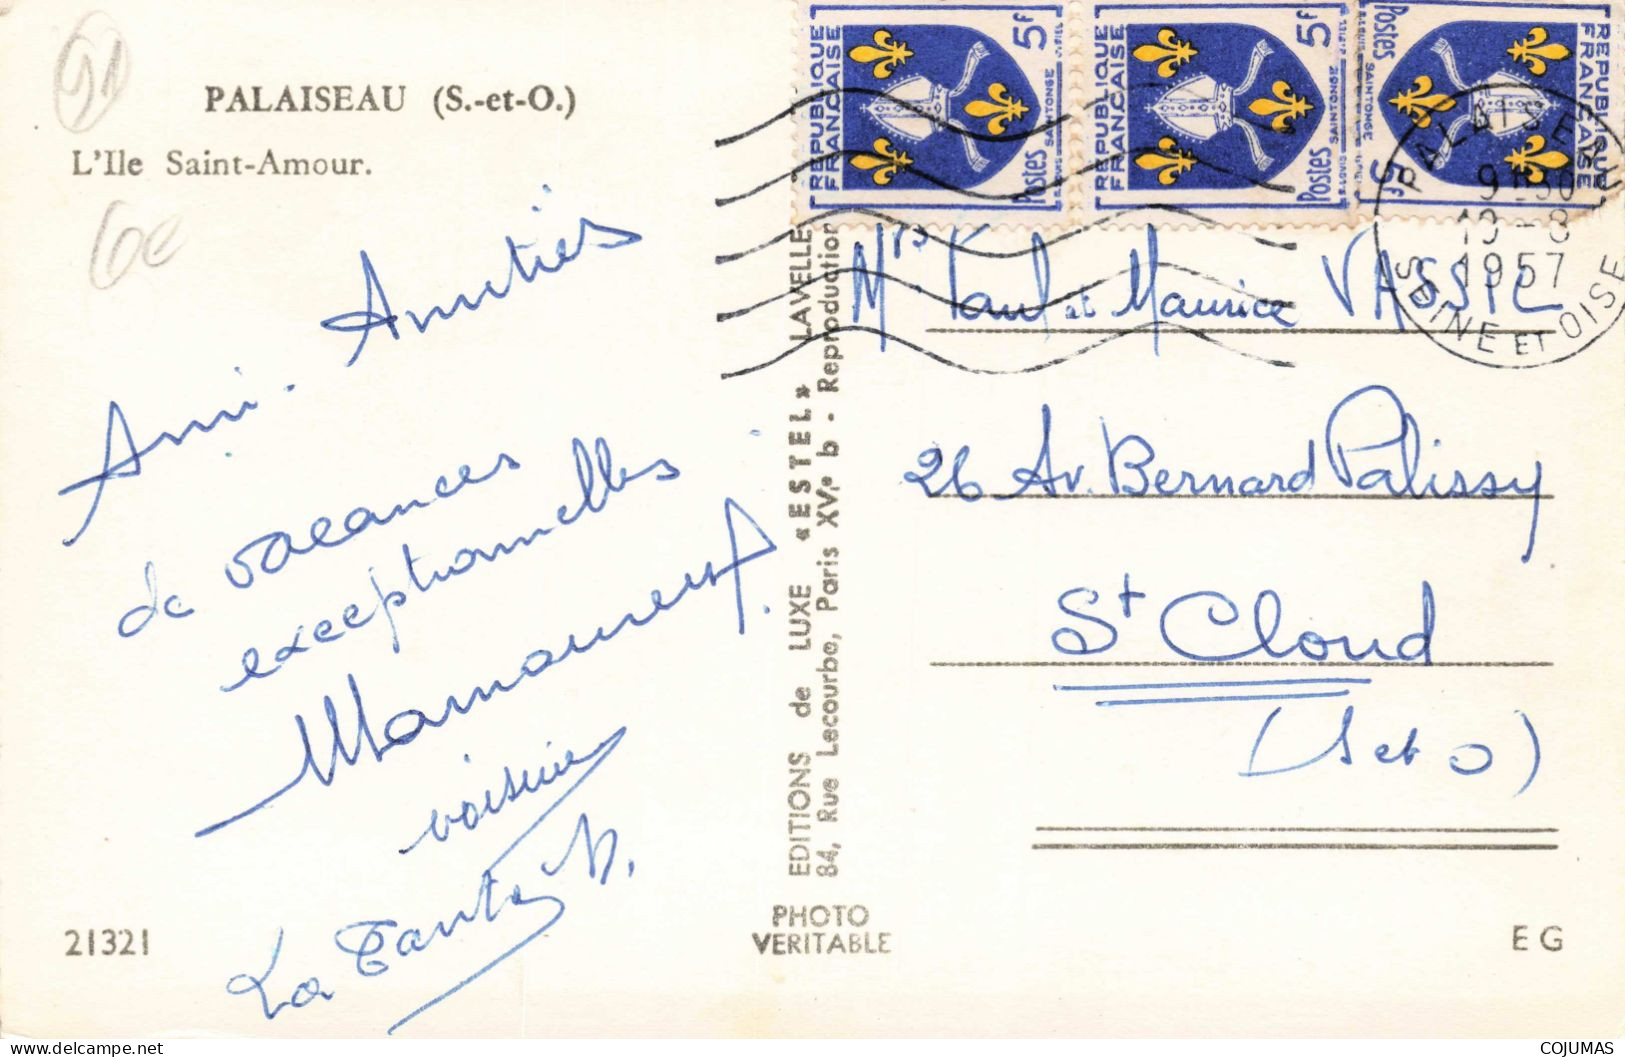 91
PALAISEAU (S.-et-O.)
L'Ile Saint-Amour.
6e
Amitiés
de vacances
exceptionnelles
voisine
La Tante M.
21321
EDITIONS de LUXE «ESTEL» LAVELLE
84, Rue Lecourbe, Paris XVe b - Reproduction
PHOTO
VERITABLE
REPUBLIQUE
FRANÇAISE
5F
Postes
SAINTONGE
REPUBLIQUE
FRANÇAISE
5F
Postes
SAINTONGE
REPUBLIQUE
FRANÇAISE
5F
Postes
SAINTONGE
PALAISEAU
9H30
19-8
1957
SEINE ET OISE
Mrs Paul et Maurice VASSIL
26 Av. Bernard Palissy
St Cloud
(S et O)
E G
Delcampe.net
COJUMAS